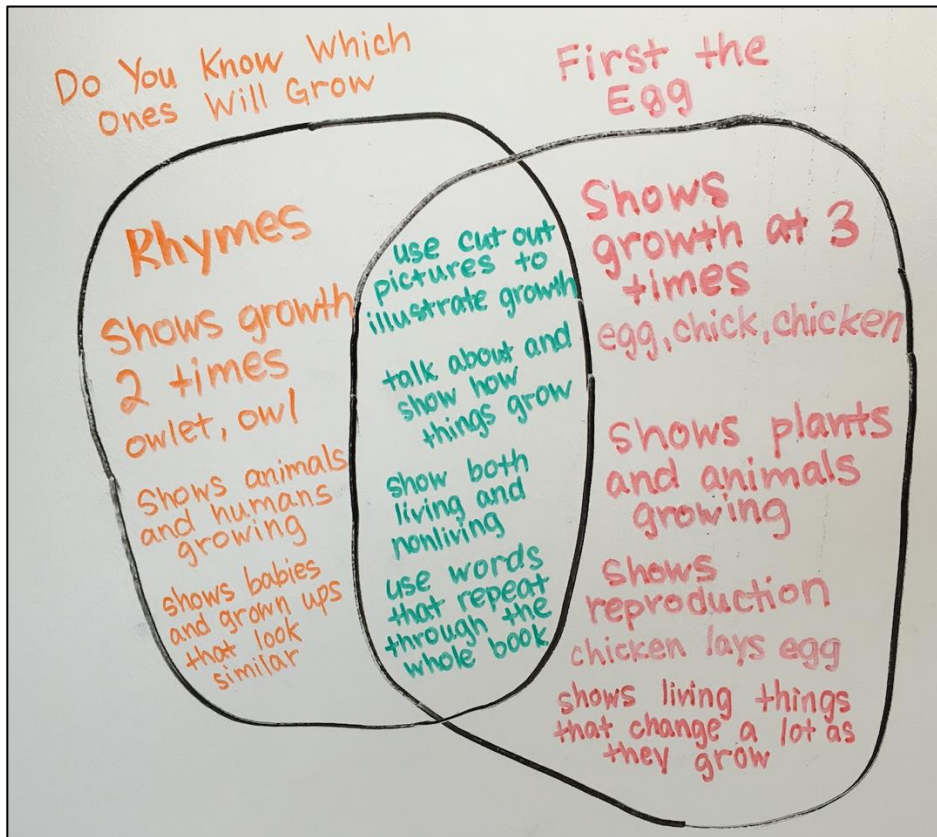 Do You Know Which
Ones Will Grow
First the
Egg
Rhymes
Shows growth
2 times
owlet, owl
Shows animals
and humans
growing
shows babies
and grown ups
that look
similar
use cut out
pictures to
illustrate growth
talk about and
show how
things grow
show both
living and
nonliving
use words
that repeat
through the
whole book
Shows
growth at 3
times
egg, chick, chicken
Shows plants
and animals
growing
shows
reproduction
chicken lays egg
shows living things
that change a lot as
they grow